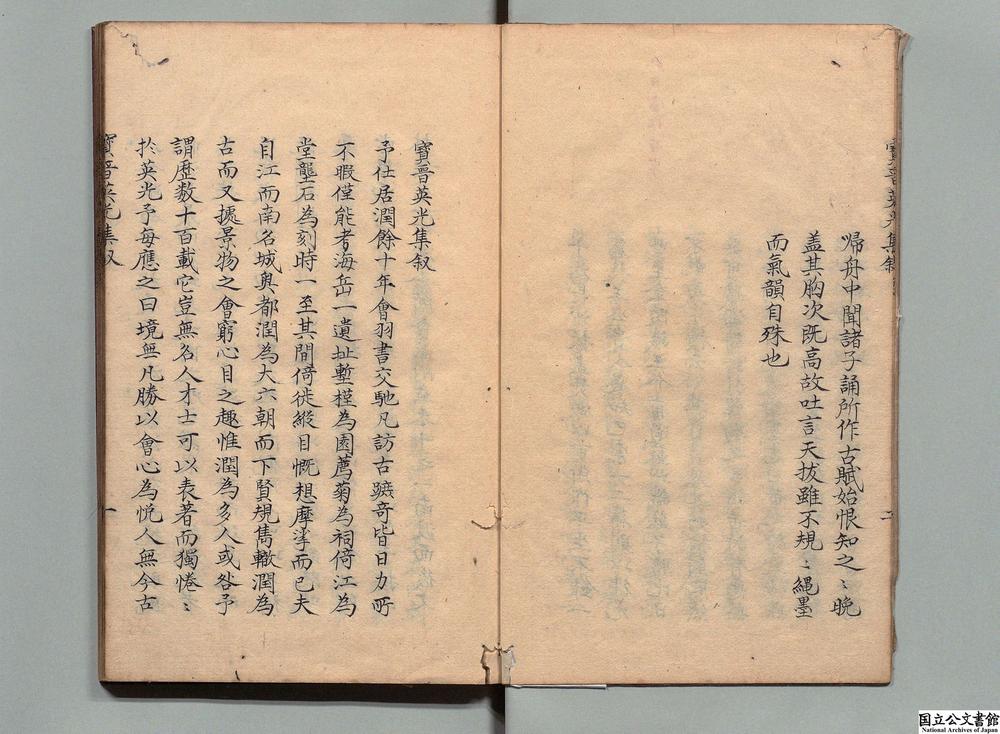 歸舟中聞諸子誦所作古賦始恨知之〻晩
盖其胸次既高故吐言天拔雖不規〻繩墨
而氣韻自殊也
寶晉英光集叙
予仕居潤餘十年會羽書交馳凡訪古蹠竒皆日力所
不暇僅能考海岳一遺址塹槿為園薦菊為祠倚江為
堂壟石為刻時一至其間倚徙縱目慨想摩挲而已夫
自江而南名城奥都潤為大六朝而下賢規雋轍潤為
古而又㩀景物之會窮心目之趣惟潤為多人或咎予
謂歴数十百載它豈無名人才士可以表著而獨惓〻
於英光予每應之曰境無凡勝以會心為悦人無今古
寶晉英光集叙
一
国立公文書館
National Archives of Japan